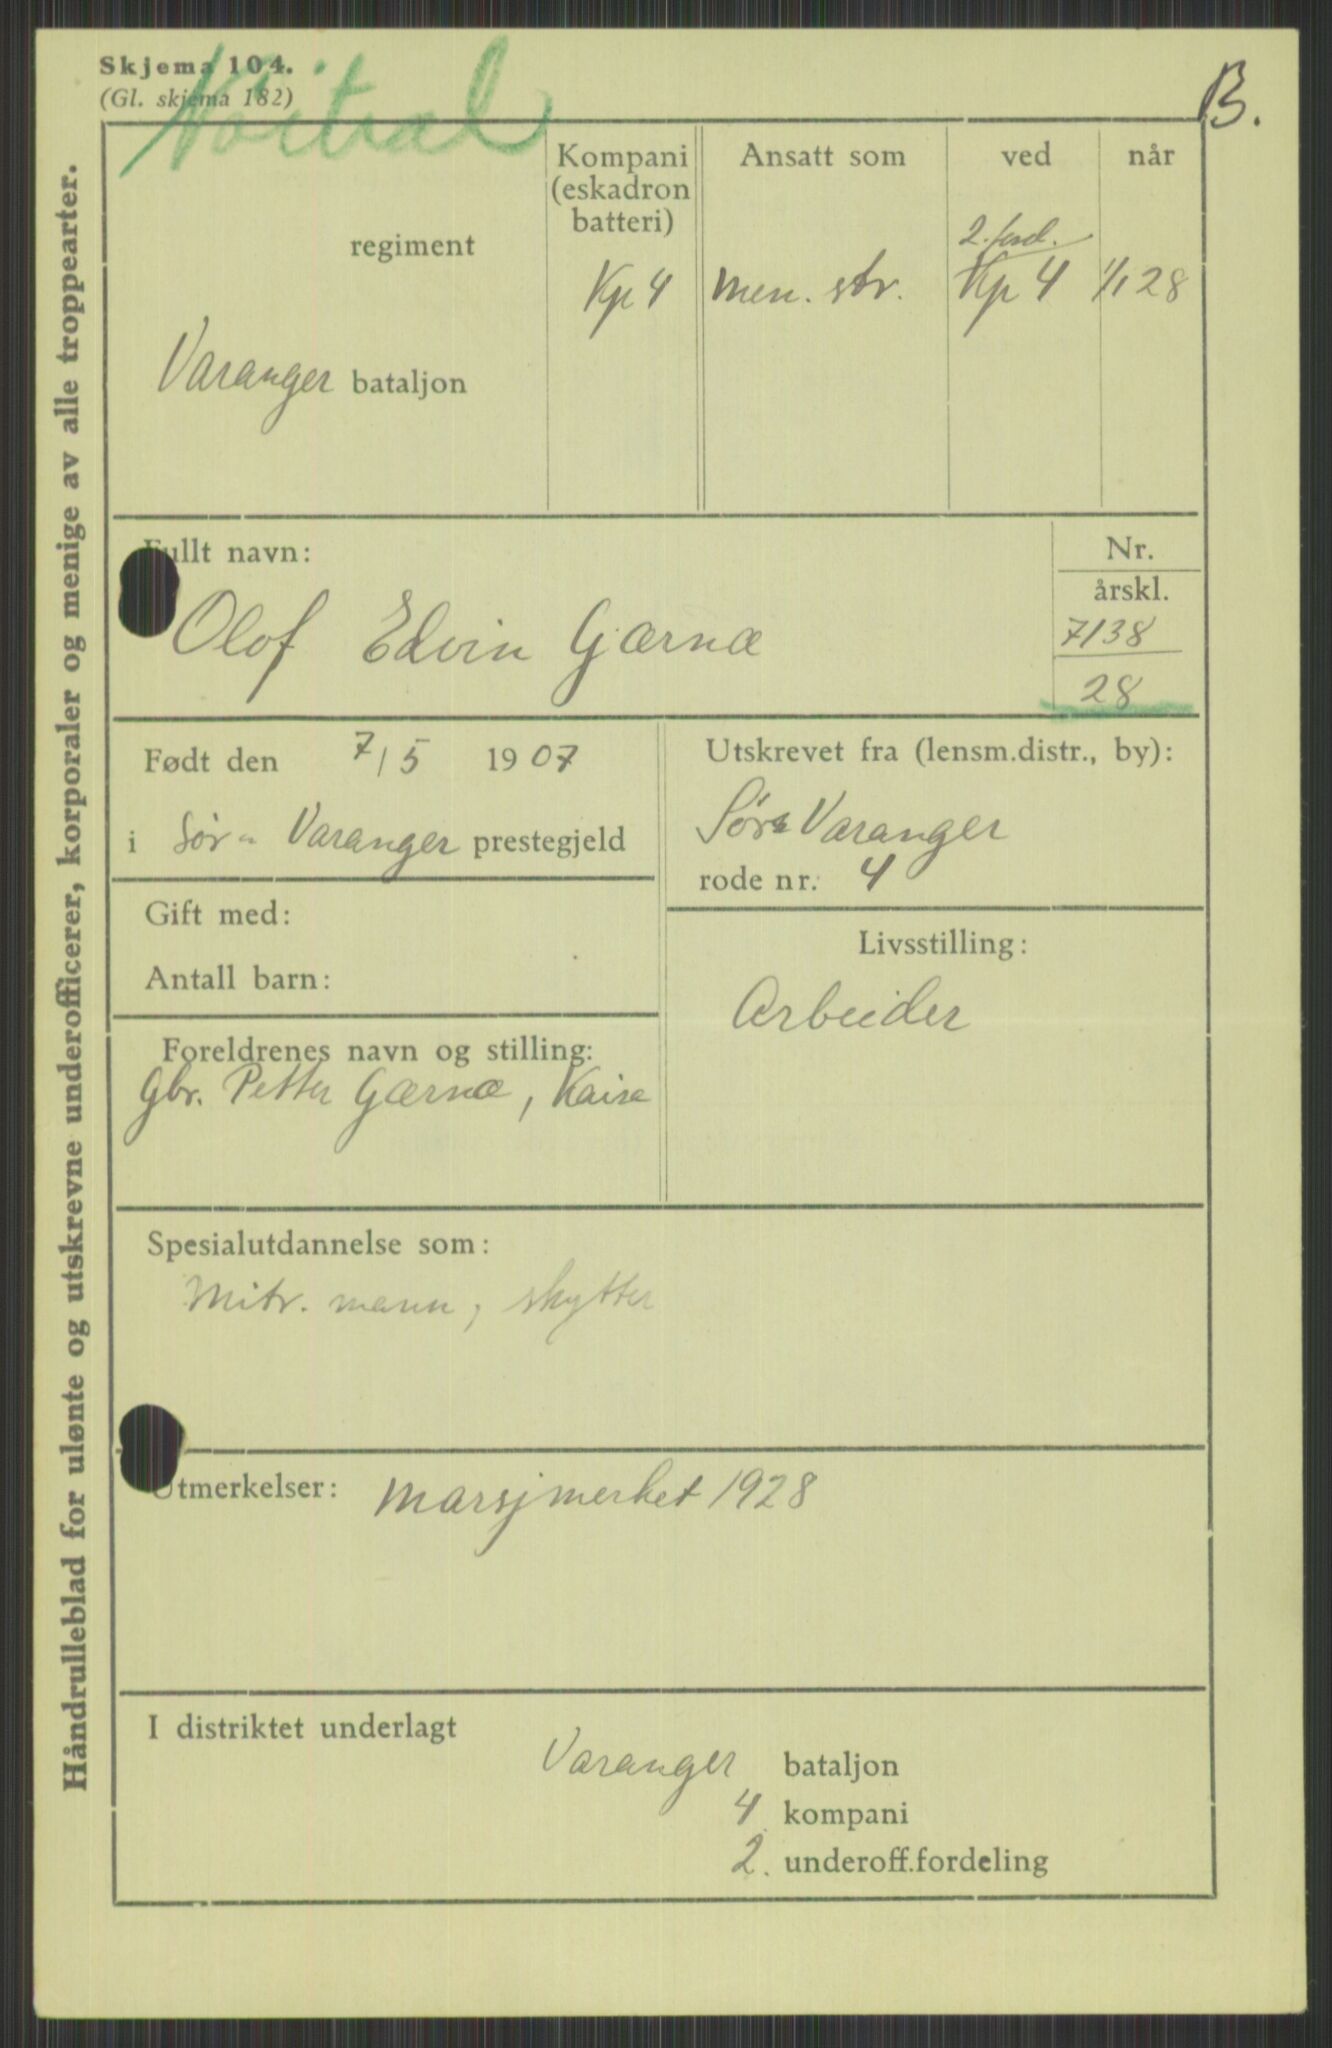 Skjema 104.
(Gl. skjema 182)
Nøitral
B.
Håndrulleblad for ulønte og utskrevne underofficerer, korporaler og menige av alle troppearter.
regiment
Varanger bataljon
Kompani
(eskadron
batteri)
Kp 4
Ansatt som
men. str.
ved
2. ford.
Kp 4
når
1/1 28
Fullt navn:
Olof Edvin Gærnæ
Nr.
årskl.
7138
28
Født den 7/5 1907
i Sør - Varanger prestegjeld
Utskrevet fra (lensm.distr., by):
Sør Varanger
rode nr. 4
Gift med:
Antall barn:
Livsstilling:
Arbeider
Foreldrenes navn og stilling:
Gbr. Petter Gærnæ, Kaisa
Spesialutdannelse som:
Mitr. mann, skytter
Utmerkelser: Marsjmerket 1928
I distriktet underlagt
Varanger bataljon
4 kompani
2. underoff.fordeling